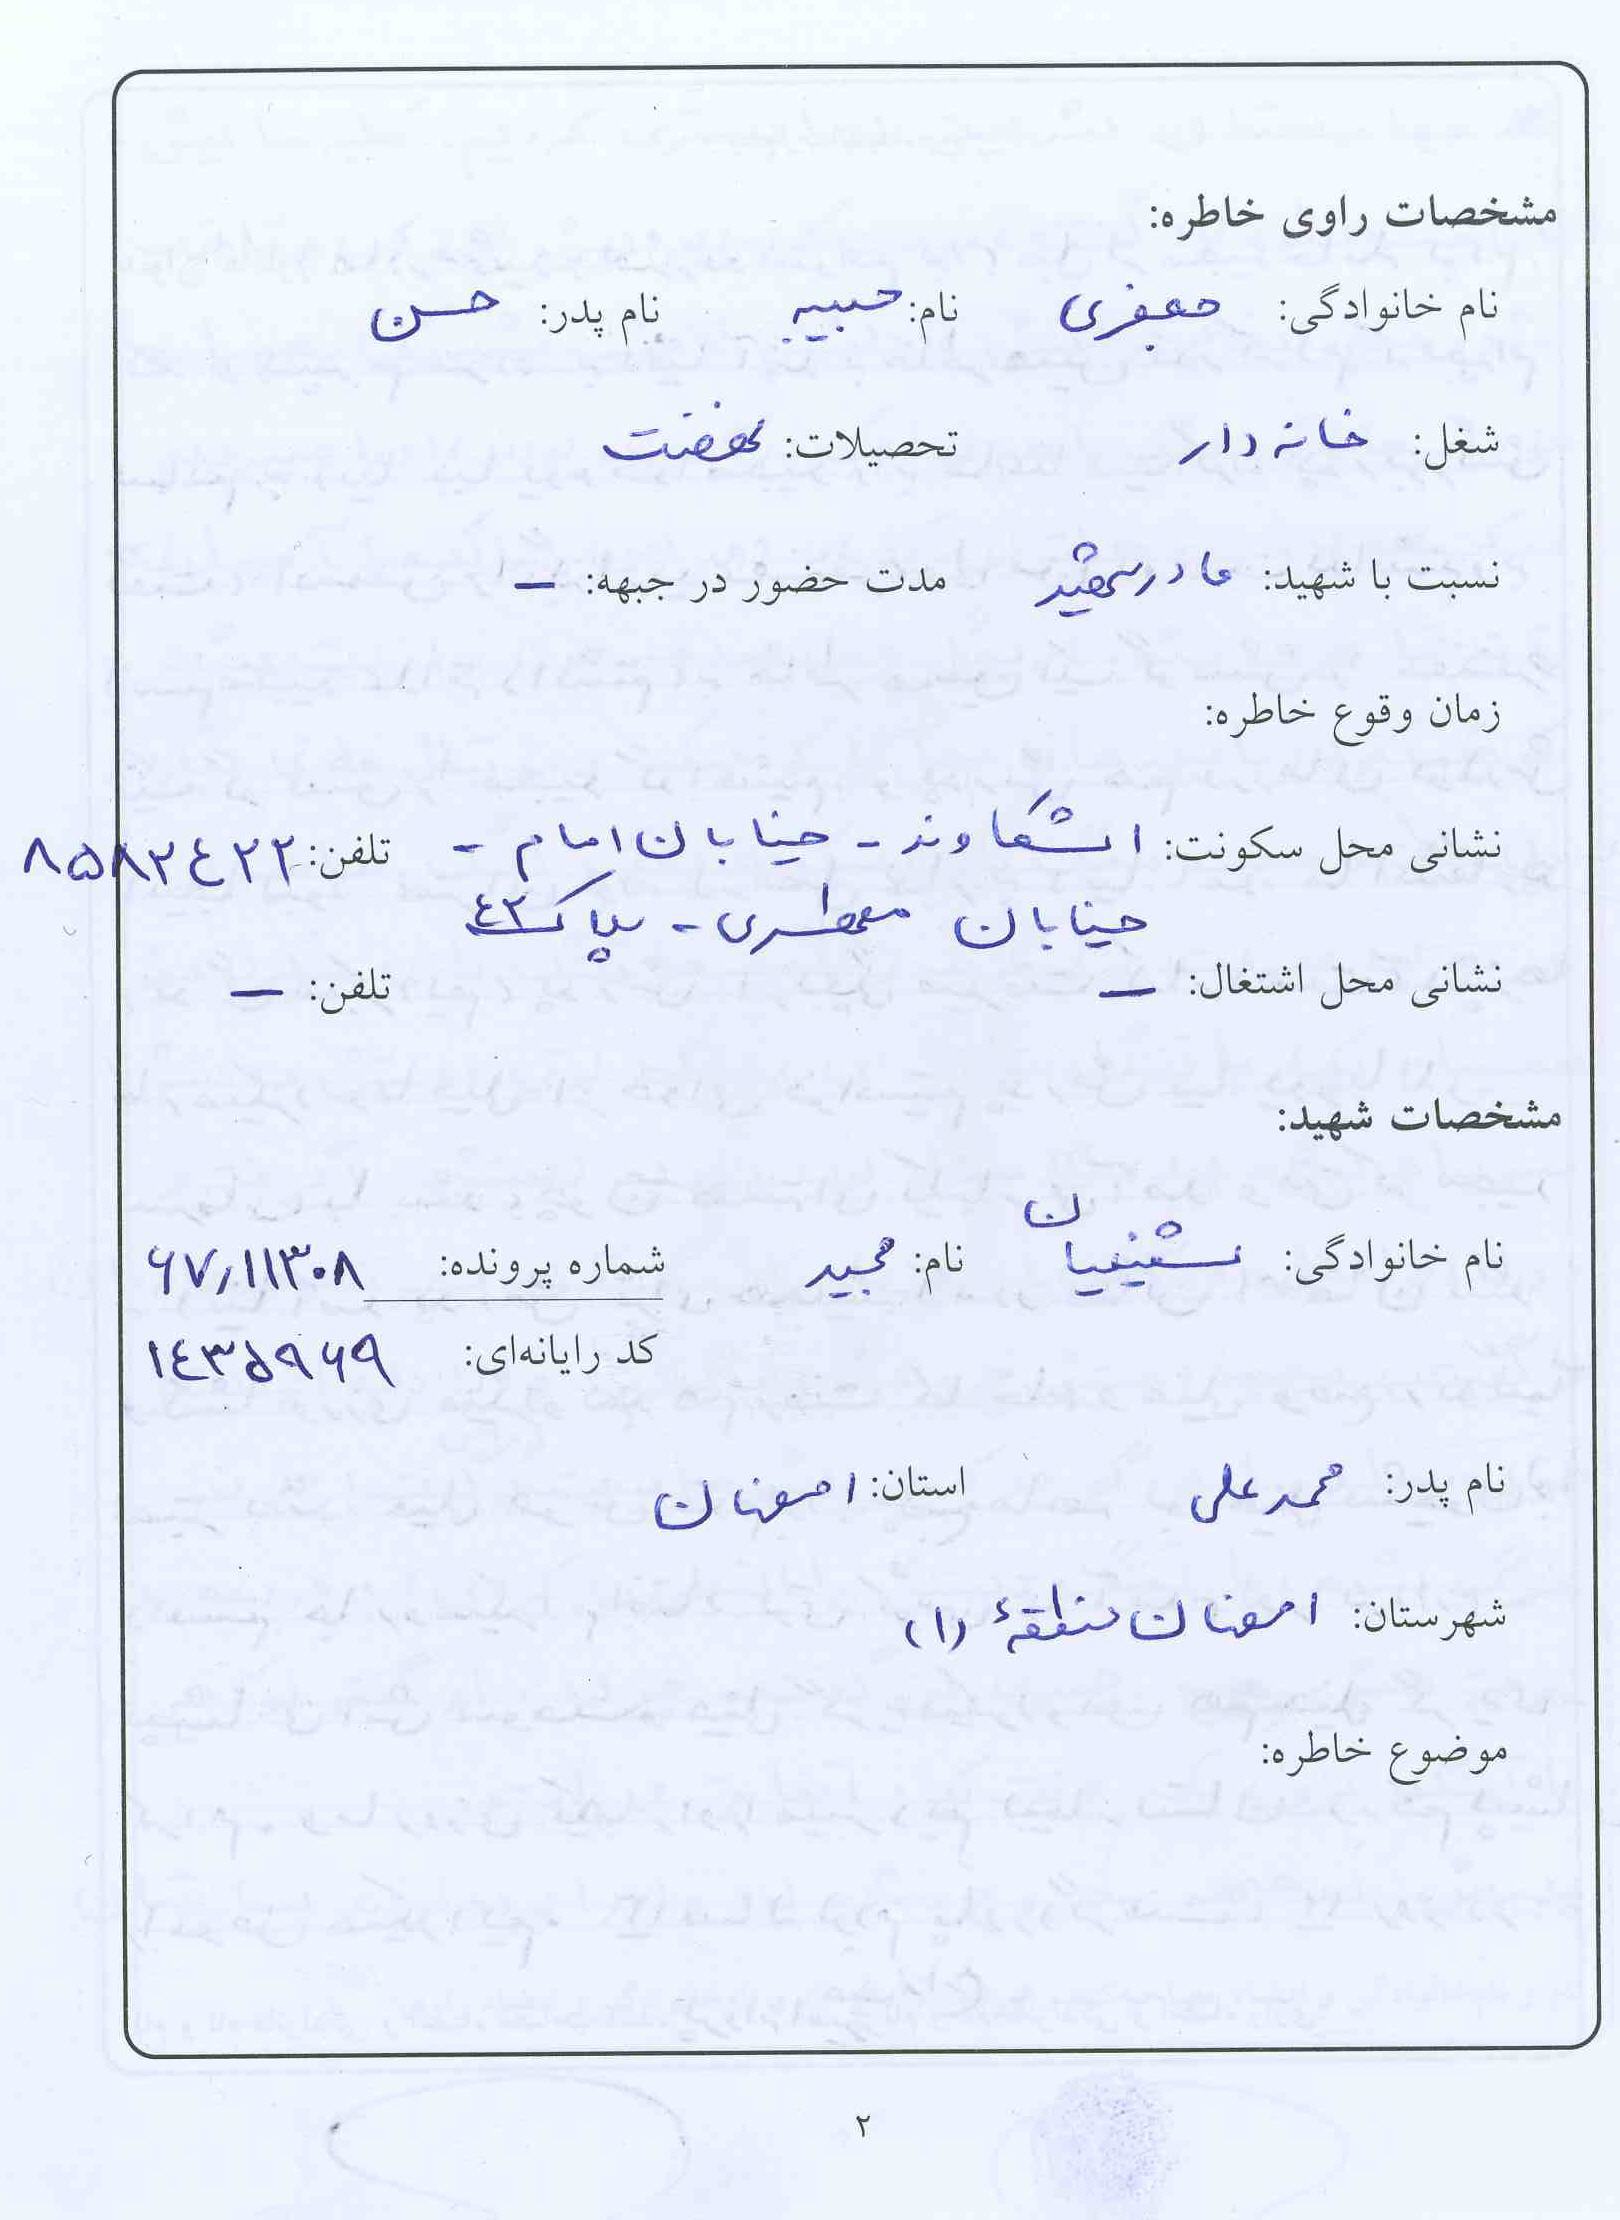 مشخصات راوی خاطره:
نام خانوادگی: جعفری نام: حبیبه نام پدر: حسن
شغل: خانه دار تحصیلات: نهضت
نسبت با شهید: مادر شهید مدت حضور در جبهه: –
زمان وقوع خاطره:
نشانی محل سکونت: اشکاوند - خیابان امام - تلفن: ۸۵۸۲۴۲۲
خیابان مطهری - پلاک ۴۲
نشانی محل اشتغال: – تلفن: –
مشخصات شهید:
نام خانوادگی: نام: مجید شماره پرونده: ۶۷/۱۱۳۰۸
کد رایانه‌ای: ۱۴۳۵۹۶۹
نام پدر: محمد علی استان: اصفهان
شهرستان: اصفهان منطقهٔ (۱)
موضوع خاطره:
۲